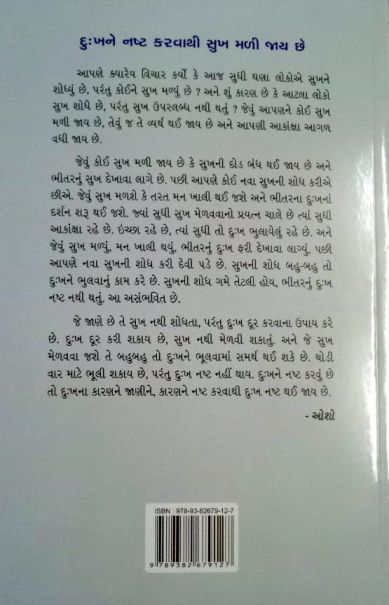 દુઃખને નષ્ટ કરવાથી સુખ મળી જાય છે
આપણે ક્યારેય વિચાર કર્યો કે આજ સુધી ઘણા લોકોએ સુખને
શોધ્યું છે, પરંતુ કોઈને સુખ મળ્યું છે ? અને શું કારણ છે કે આટલા લોકો
સુખ શોધે છે, પરંતુ સુખ ઉપલબ્ધ નથી થતું ? જેવું આપણને કોઈ સુખ
મળી જાય છે, તેવું જ તે વ્યર્થ થઈ જાય છે અને આપણી આકાંક્ષા આગળ
વધી જાય છે.
જેવું કોઈ સુખ મળી જાય છે કે સુખની દોડ બંધ થઈ જાય છે અને
ભીતરનું સુખ દેખાવા લાગે છે. પછી આપણે કોઈ નવા સુખની શોધ કરીએ
છીએ. જેવું સુખ મળશે કે તરત મન ખાલી થઈ જશે અને ભીતરના દુઃખનાં
દર્શન શરૂ થઈ જશે. જ્યાં સુધી સુખ મેળવવાનો પ્રયત્ન ચાલે છે ત્યાં સુધી
આકાંક્ષા રહે છે. ઇચ્છા રહે છે, ત્યાં સુધી તો દુઃખ ભુલાયેલું રહે છે. અને
જેવું સુખ મળ્યું, મન ખાલી થયું, ભીતરનું દુઃખ ફરી દેખાવા લાગ્યું. પછી
આપણે નવા સુખની શોધ કરી દેવી પડે છે. સુખની શોધ બહુ-બહુ તો
દુઃખને ભુલવાનું કામ કરે છે. સુખની શોધ ગમે તેટલી હોય, ભીતરનું દુઃખ
નષ્ટ નથી થતું, આ અસંભવિત છે.
જે જાણે છે તે સુખ નથી શોધતા, પરંતુ દુઃખ દૂર કરવાના ઉપાય કરે
છે. દુઃખ દૂર કરી શકાય છે, સુખ નથી મેળવી શકાતું. અને જે સુખ
મેળવવા જશે તે બહુબહુ તો દુઃખને ભૂલવામાં સમર્થ થઈ શકે છે. થોડી
વાર માટે ભૂલી શકાય છે, પરંતુ દુઃખ નષ્ટ નહીં થાય. દુઃખને નષ્ટ કરવું છે
તો દુઃખના કારણને જાણીને, કારણને નષ્ટ કરવાથી દુઃખ નષ્ટ થઈ જાય છે.
- ઓશો
ISBN : 978-93-82679-12-7
9 789382 679127